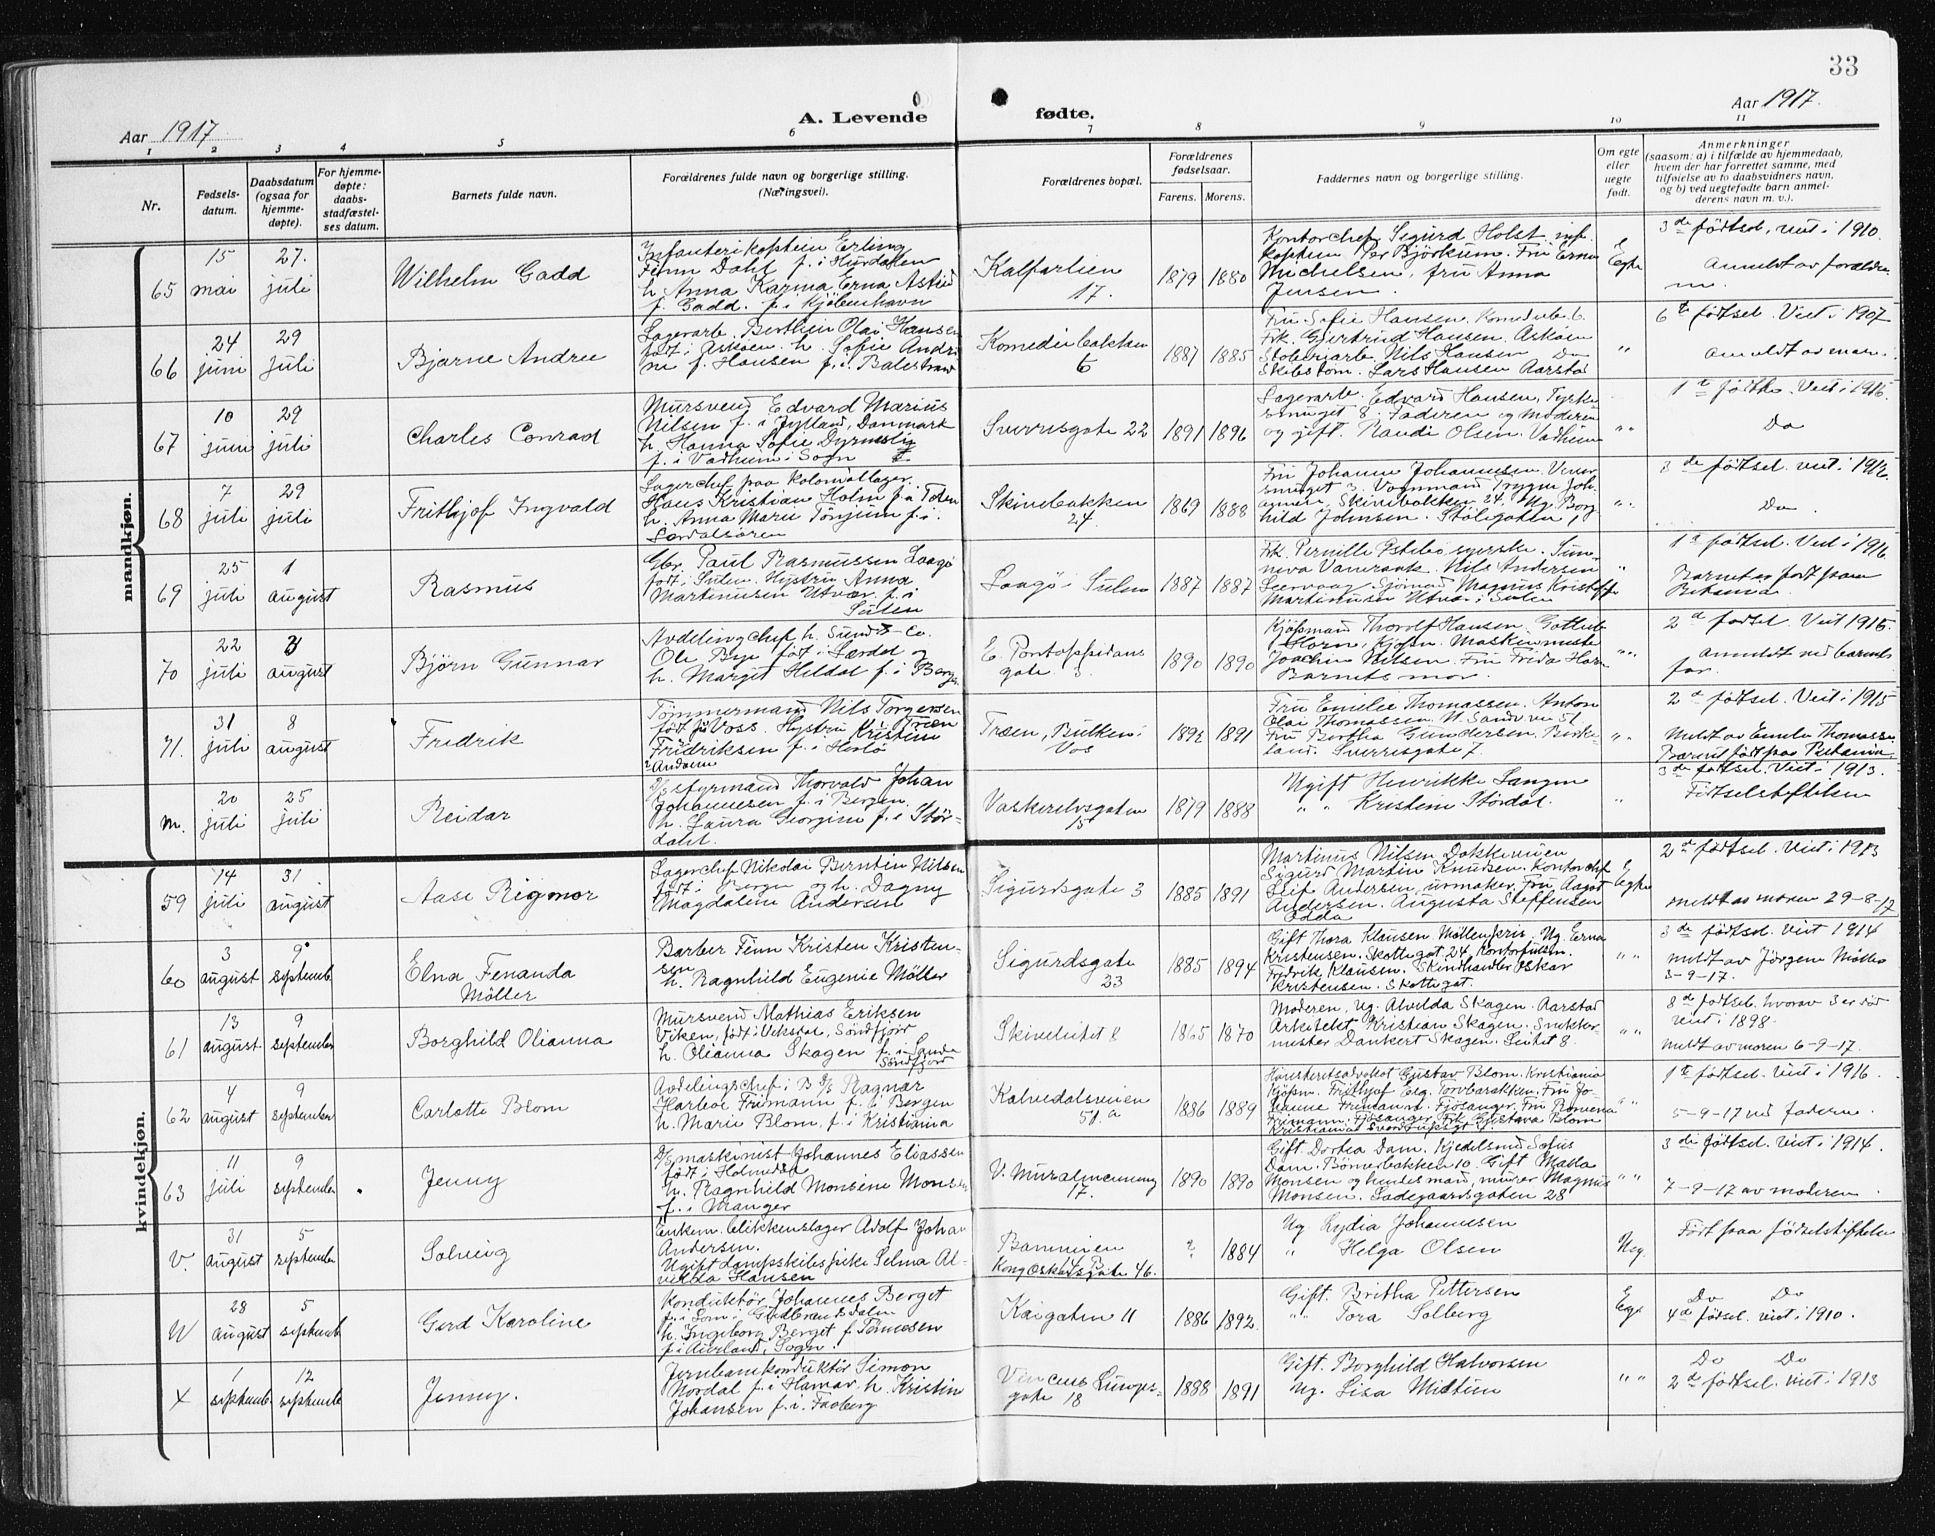 33
Aar 1917.
A. Levende
fødte.
Aar 1917.
1 2 3 4 5 6 7 8 9 10 11
Nr.
Fødsels-
datum.
Daabsdatum
(ogsaa for
hjemme-
døpte).
For hjemme-
døpte:
daabs-
stadfæstel-
ses datum.
Barnets fulde navn.
Forældrenes fulde navn og borgerlige stilling.
(Næringsvei).
Forældrenes bopæl.
Forældrenes
fødselsaar.
Farens. Morens.
Faddernes navn og borgerlige stilling.
Om egte
eller
uegte
født.
Anmerkninger
(saasom: a) i tilfælde av hjemmedaab,
hvem der har forrettet samme, med
tilføielse av to daabsvidners navn,
og b) ved uegtefødte barn anmel-
derens navn m. v.).
mandkjøn.
65
15
mai
27.
juli
Wilhelm Gadd
Infanterikaptein Erling
Finn Dahl f. i Hurdalen
h. Anna Karina Erna Astrid
f. Gadd. f. i Kjöbenhavn
Kalfarlien
17.
1879 1880
Kontorchef Sigurd Holst inf.
kaptein Per Björkum. Fru Erna
Michelsen, fru Anna
Jensen.
Egte
3de födsel, viet i 1910.
Anmeldt av foræld
66
24
juni
29
juli
Bjarne Andree
Lagerarb. Berthin Olai Hansen
født i Askøen. h. Sofie Andri
ne f. Hansen f. i Balestrand
Komediebakken
6
1887 1885
Fru Sofie Hansen. Komedieb. 6
Frk. Gjertrud Hansen. Askøen
Nils Hansen Do
Skibstøm. Lars Hansen Aarstad
"
6te födsel. Viet i 1907
Anmeldt av mor
67
10
juni
29
juli
Charles Conrad
Mursvend Edvard Marius
Nilsen f. i Jylland, Danmark
h. Hanna Sofie
f. i Vadheim i Sogn
Sverresgate 22
1891 1896
Lagerarb. Edvard Hansen, Tyrke
smuget 8. Faderen og Moderen
og gift. Randi Olsen. Vadheim
" "
1te födsel. Viet i 1916.
Do
68
7
juli
29
juli
Frithjof Ingvald
Lagerchef paa kolonial lager
Hans Kristian Holm f. i Toten
h. Anna Marie Tönjum f. i
Lærdalsören
Skivebakken
24.
1869 1888
Fru Johanne Johannesen.
smuget 3. Vognmand Trygve Joh
annes. Skivebakken 24. Ug. Borg
hild Johnsen. Stölegaten
" "
3de födsel. viet i 1912.
Do.
69
25
juli
1
august
Rasmus
Gbr. Paul Rasmussen Laagö
født i Sulen. Hustru Anna
Martinusen Utvær. f. i
Sulen
Laagö i Sulen
1887 1887
Frk. Pernille syerske.
Nils Andersen
Magnus Kristoff
Martinusen Utvær i Sulen
"
1te födsel. Viet i 1916
Barnet er født paa
Betania.
70
22
juli
3
august
Björn Gunnar
Avdelingchef h. Sundt & Co.
Ole Bye født i Lærdal og
h. Margit Heldal f. i Bergen
E. Pontoppidans
gate 3.
1890 1890
Kjøpmand Thorolf Hansen. Gottlieb
Horn, Kjøpm. Maskinmester
Joachim Nilsen. Fru Frida Horn
Barnets mor.
" "
2de födsel. Viet 1915.
Anmeldt ved barnets
far.
71.
31
juli
8
august
Fridrik
Tömmermand Nils Torgersen
født på Voss. Hustru Kristine
Fridriksen f. i Herlö
Træen, Bulken i
Vos
1892 1891
Fru Emelie Thomassen. Anton
Olai Thomassen. N. Sandvien 51.
Fru Bertha Gundersen. Birke-
land. Sverresgate 7.
" "
2de födsel. Viet i 1915
Meldt av Emelie Thomassen
Barnet født paa Betania.
m.
20
juli
25
juli
Reidar
styrmand Thorvald Johan
Johannesen f. i Bergen.
h. Laura Georgine f. i Stör-
dalen
Vaskerelvsgaten
15
1879 1888
Ugift Henrikke Langen
" " Kristine Stördal.
"
3de födsel. Viet i 1913.
Födselsstiftelsen
kvindekjøn.
59
14
juli
31
august
Aase Rigmor
Lagerchef Nikolai Berntin Nilsen
født i Bergen og h. Dagny
Magdalene Andersen
Sigurdsgate 3
1885 1891
Martinus Nilsen Dokkeveien
Sigurd Martin Knudsen. Kontorchef
Leif Andersen, urmaker. Fru Aagot
Andersen. Augusta Steffensen
Odda
Egte
2de födsel. Viet i 1913
meldt av moren 29-8-17
60
3
august
9
septemb.
Elna Fenanda
Möller
Barber Finn Kristen Kristen-
sen
h. Ragnhild Eugenie Möller
Sigurdsgate
23
1885 1894
Gift Thora Klausen Möllenpris. Ug. Erna
Kristensen. Skottegat. 24. Kontorfuldm.
Fredrik Klausen. Skindhandler Oskar
Kristensen. Skottegat.
" "
3de födsel. viet 1914
Meldt av Jörgen Möller
3-9-17.
61
13
august
9
september
Borghild Olianna
Mursvend Mathias Eriksen
Viken, født i Vevring, Söndfjör
h. Olianna Skagen f. i Sande
Söndfjord
Skivebakken 8
1865 1870
Moderen. Ug. Alvilda Skagen. Aarstad
Arkitekt Kristian Skagen. Snekker-
mester Dankert Skagen. 8.
" "
8de födsel. hvorav 3 er död
viet i 1898.
Meldt av moren 6-9-17.
62
4
august
9
september
Carlotte Blom
Avdelingschef i B Ragnar
Harboe Frimann f. i Bergen
h. Marie Blom, f. i Kristiania
Kalvedalsveien
51. a
1886 1889
Höiesteretsadvokat Gustav Blom. Kristiania
Kjøpm. Frithjof Eeg. Torvbakken. Fru Jo-
hanne Frimann. Fjösanger. Fru Romena
Frimann. Fjösanger. Frk. Gustava Blom
Kristiania
" "
1te födsel. viet i 1916.
5-9-17 ved faderen.
63
11
juli
9
september
Jenny
maskinist Johannes Eliassen
født i Holmedal
h. Ragnhild Monsine Monsen
f. i Manger
V. Muralmenning
17.
1890 1890
Gift. Dortea Dam. Kjedelsmed Sofus
Dam. Römerbakken 10. Gift Malla
Monsen og hendes mand, murer Magnus
Monsen. Ladegaardsgaten 28
" "
3die födsel. viet i 1914.
7-9-17 av moderen.
V.
31
august
5
september
Solveig
Enkem. blikkenslager Adolf Johan
Andersen.
Ugift Dampskibspike Selma Al-
vilda Hansen
Kong Oskarsgate 46.
? 1884
Ug Lydia Johannesen
" Helga Olsen
Ueg.
Født paa födselstiftelse
W
28
august
5
septemb.
Gerd Karoline
Konduktör Johannes Berget
f. i Lom i Gudbrandsdalen
h. Ingeborg Berget f. Tönnesen
f. i Aurland, Sogn.
Kaigaten 11
1886 1892.
Gift. Britha Pettersen
" " Tora Solberg
Eg.
Do Do
4de födsel. viet i 1910.
X
1
septemb.
12
septemb.
Jenny.
Jernbanekonduktör Simon
Nordal f. i Hamar. h. Kristin
Johansen f. i. Faaberg
Vincens Lunges-
gate 18
1888 1891
Gift. Borghild Halvorsen
Ug. Lisa Midtun
" "
Do Do
2de födsel. viet i 1913